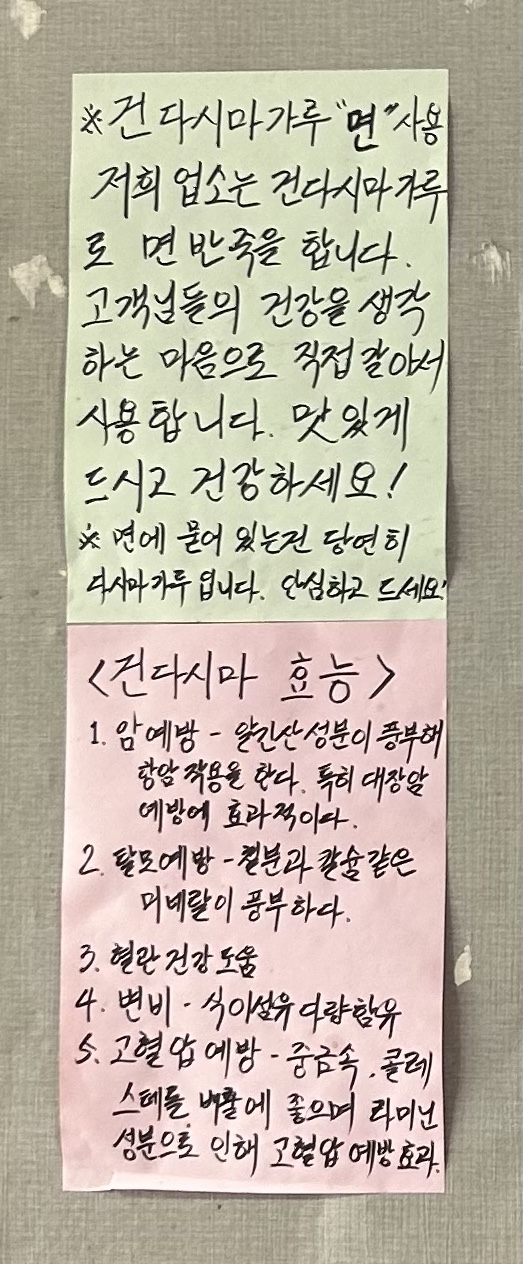 ※ 건다시마가루 "면" 사용
저희 업소는 건다시마가루
로 면 반죽을 합니다.
고객님들의 건강을 생각
하는 마음으로 직접 갈아서
사용합니다. 맛있게
드시고 건강하세요!
※ 면에 묻어 있는건 당연히
다시마가루 입니다. 안심하고 드세요!
<건다시마 효능>
1. 암예방 - 알긴산성분이 풍부해
항암 작용을 한다. 특히 대장암
예방에 효과적이다.
2. 탈모예방 - 철분과 칼슘같은
미네랄이 풍부하다.
3. 혈관건강도움
4. 변비 - 식이섬유 다량함유
5. 고혈압예방 - 중금속, 콜레
스테롤 배출에 좋으며 라미닌
성분으로 인해 고혈압 예방효과.